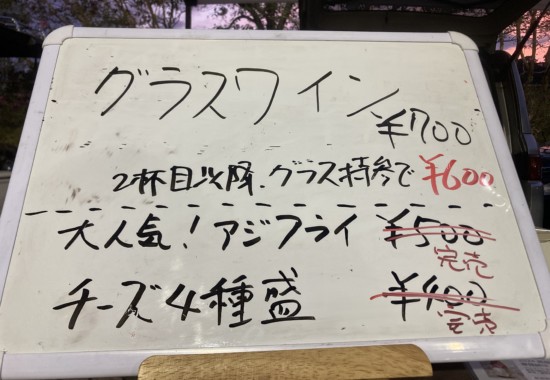 グラスワイン ¥700
2杯目以降、グラス持参で ¥600
大人気！アジフライ ¥500
完売
チーズ4種盛 ¥400
完売